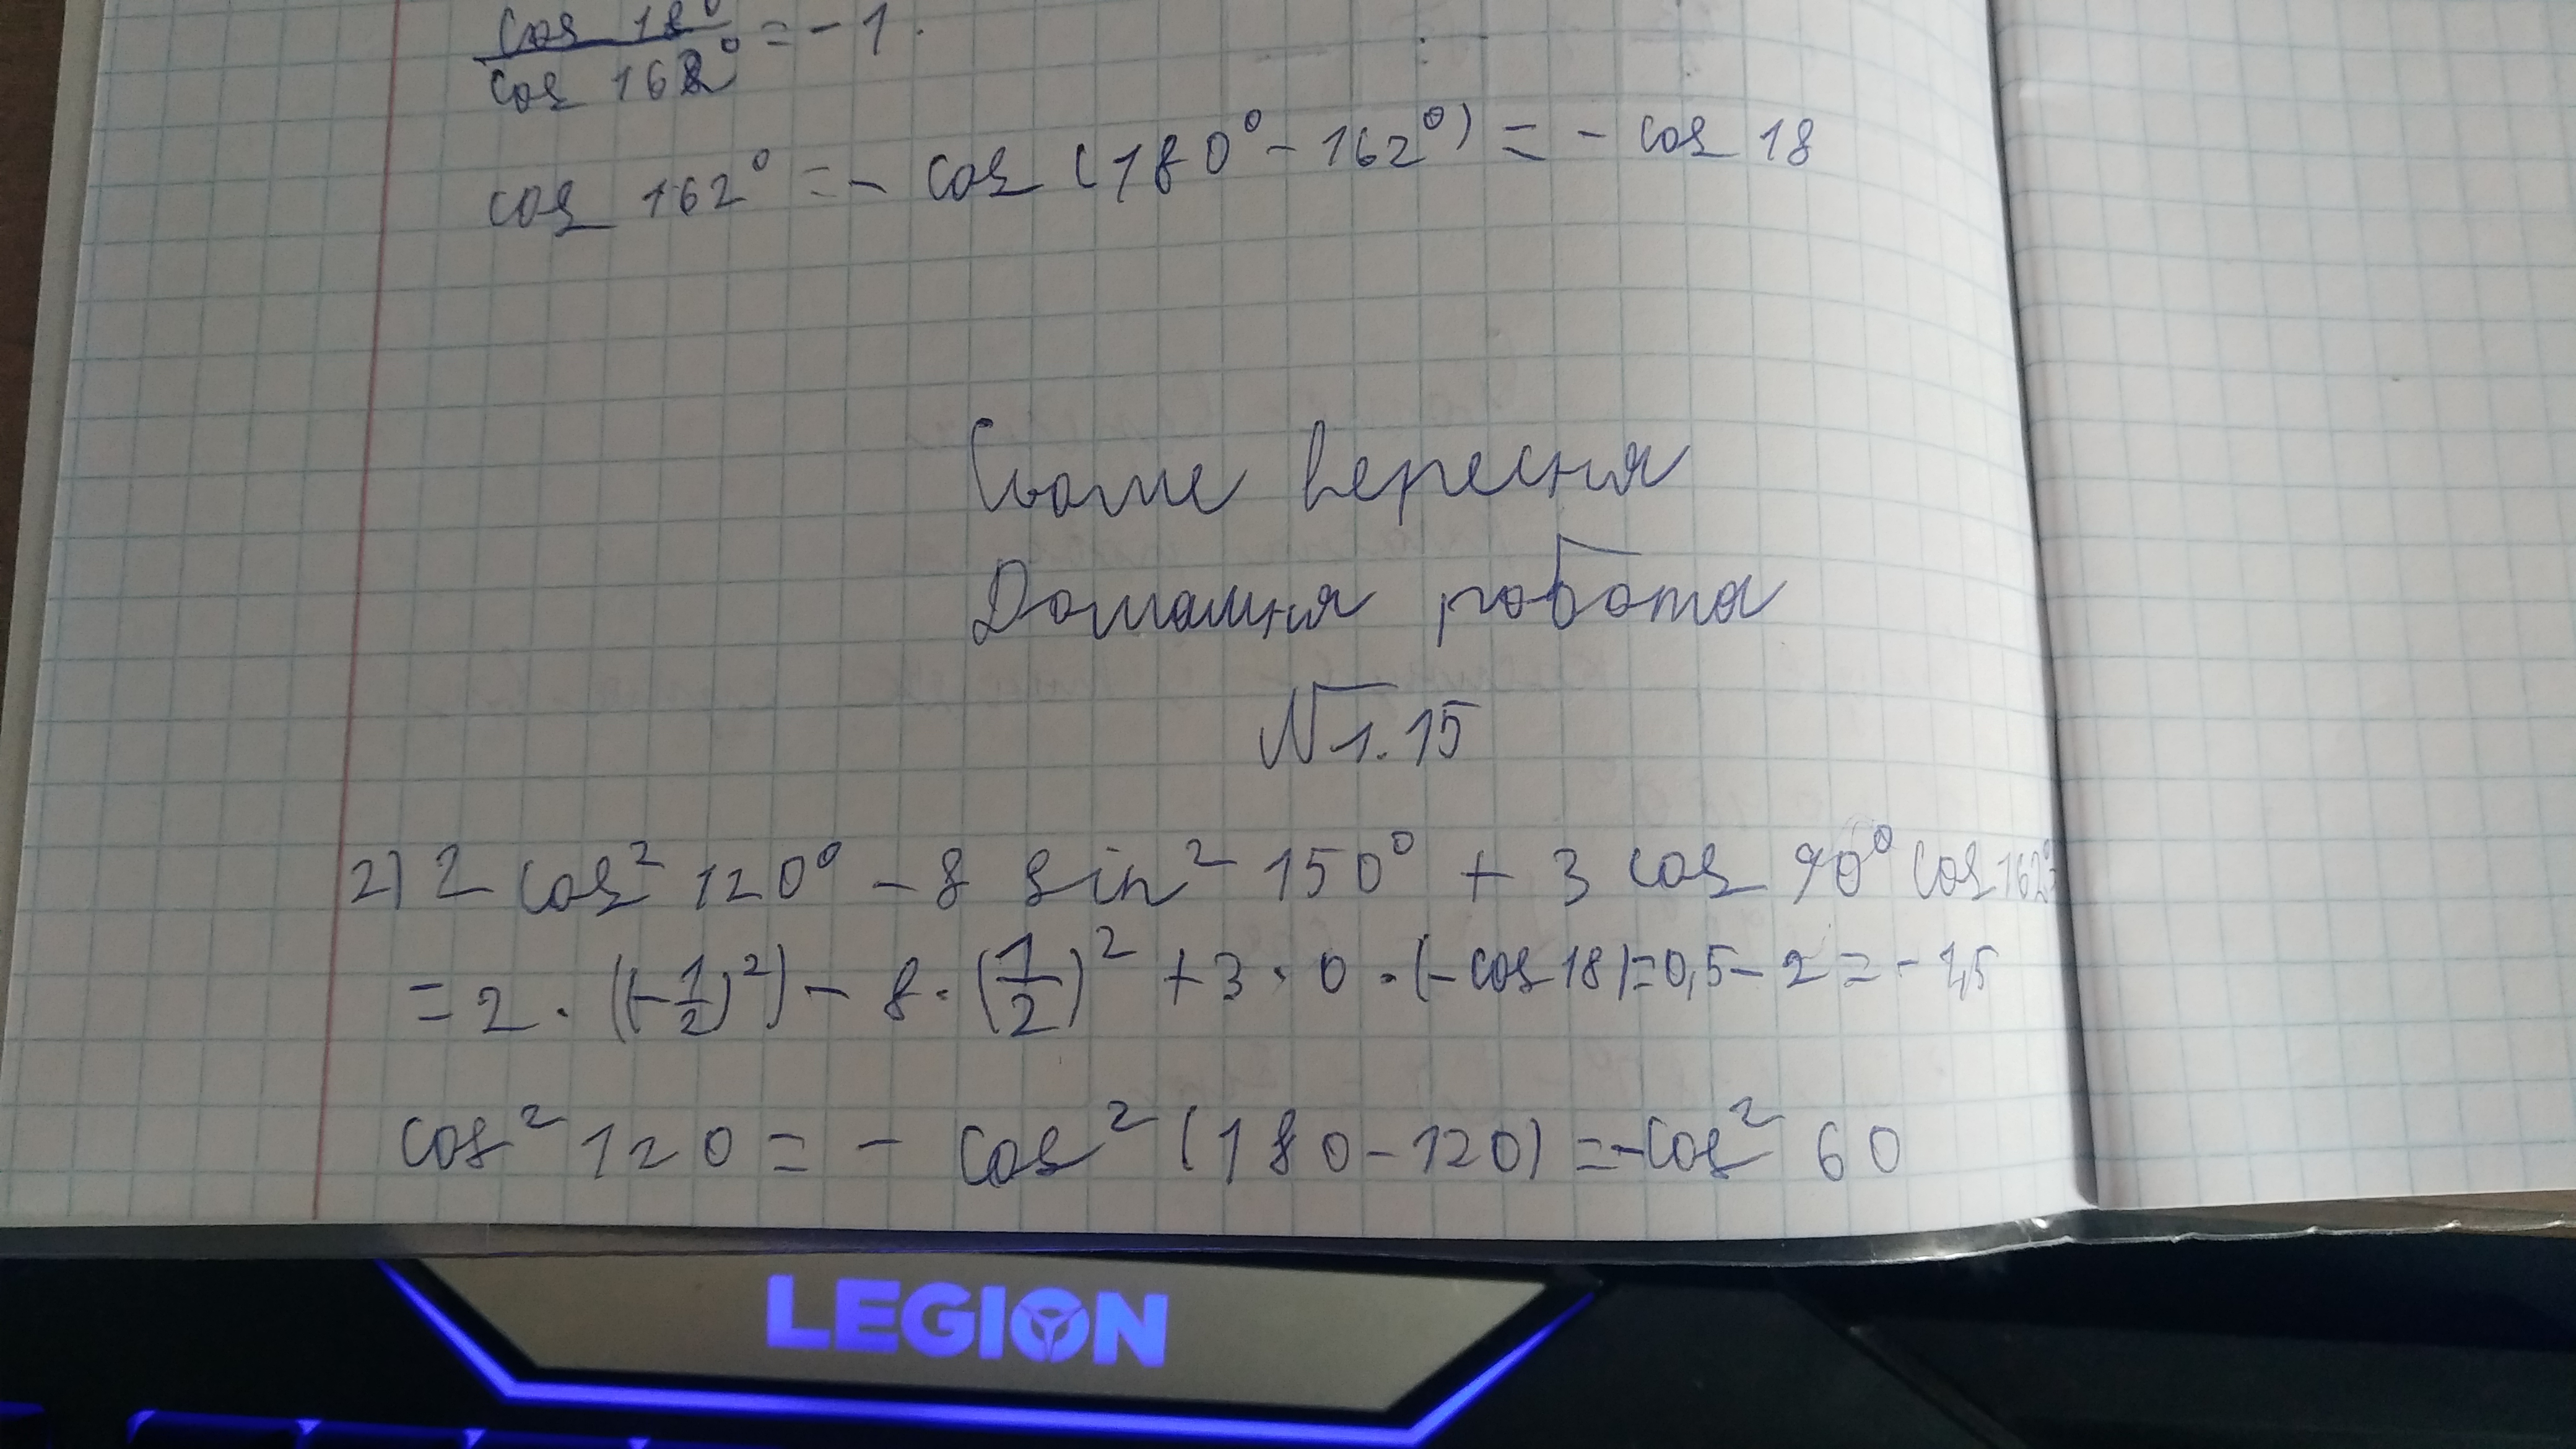 cos 18° / cos 162° = - 1.
cos 162° = - cos (180° - 162°) = - cos 18
Сьоме вересня
Домашня робота
№1.15
2) 2 cos² 120° - 8 sin² 150° + 3 cos 90° cos 162° =
= 2 · ((-1/2)²) - 8 · (1/2)² + 3 · 0 · (- cos 18) = 0,5 - 2 = - 1,5
cos² 120 = - cos² (180 - 120) = - cos² 60
LEGION